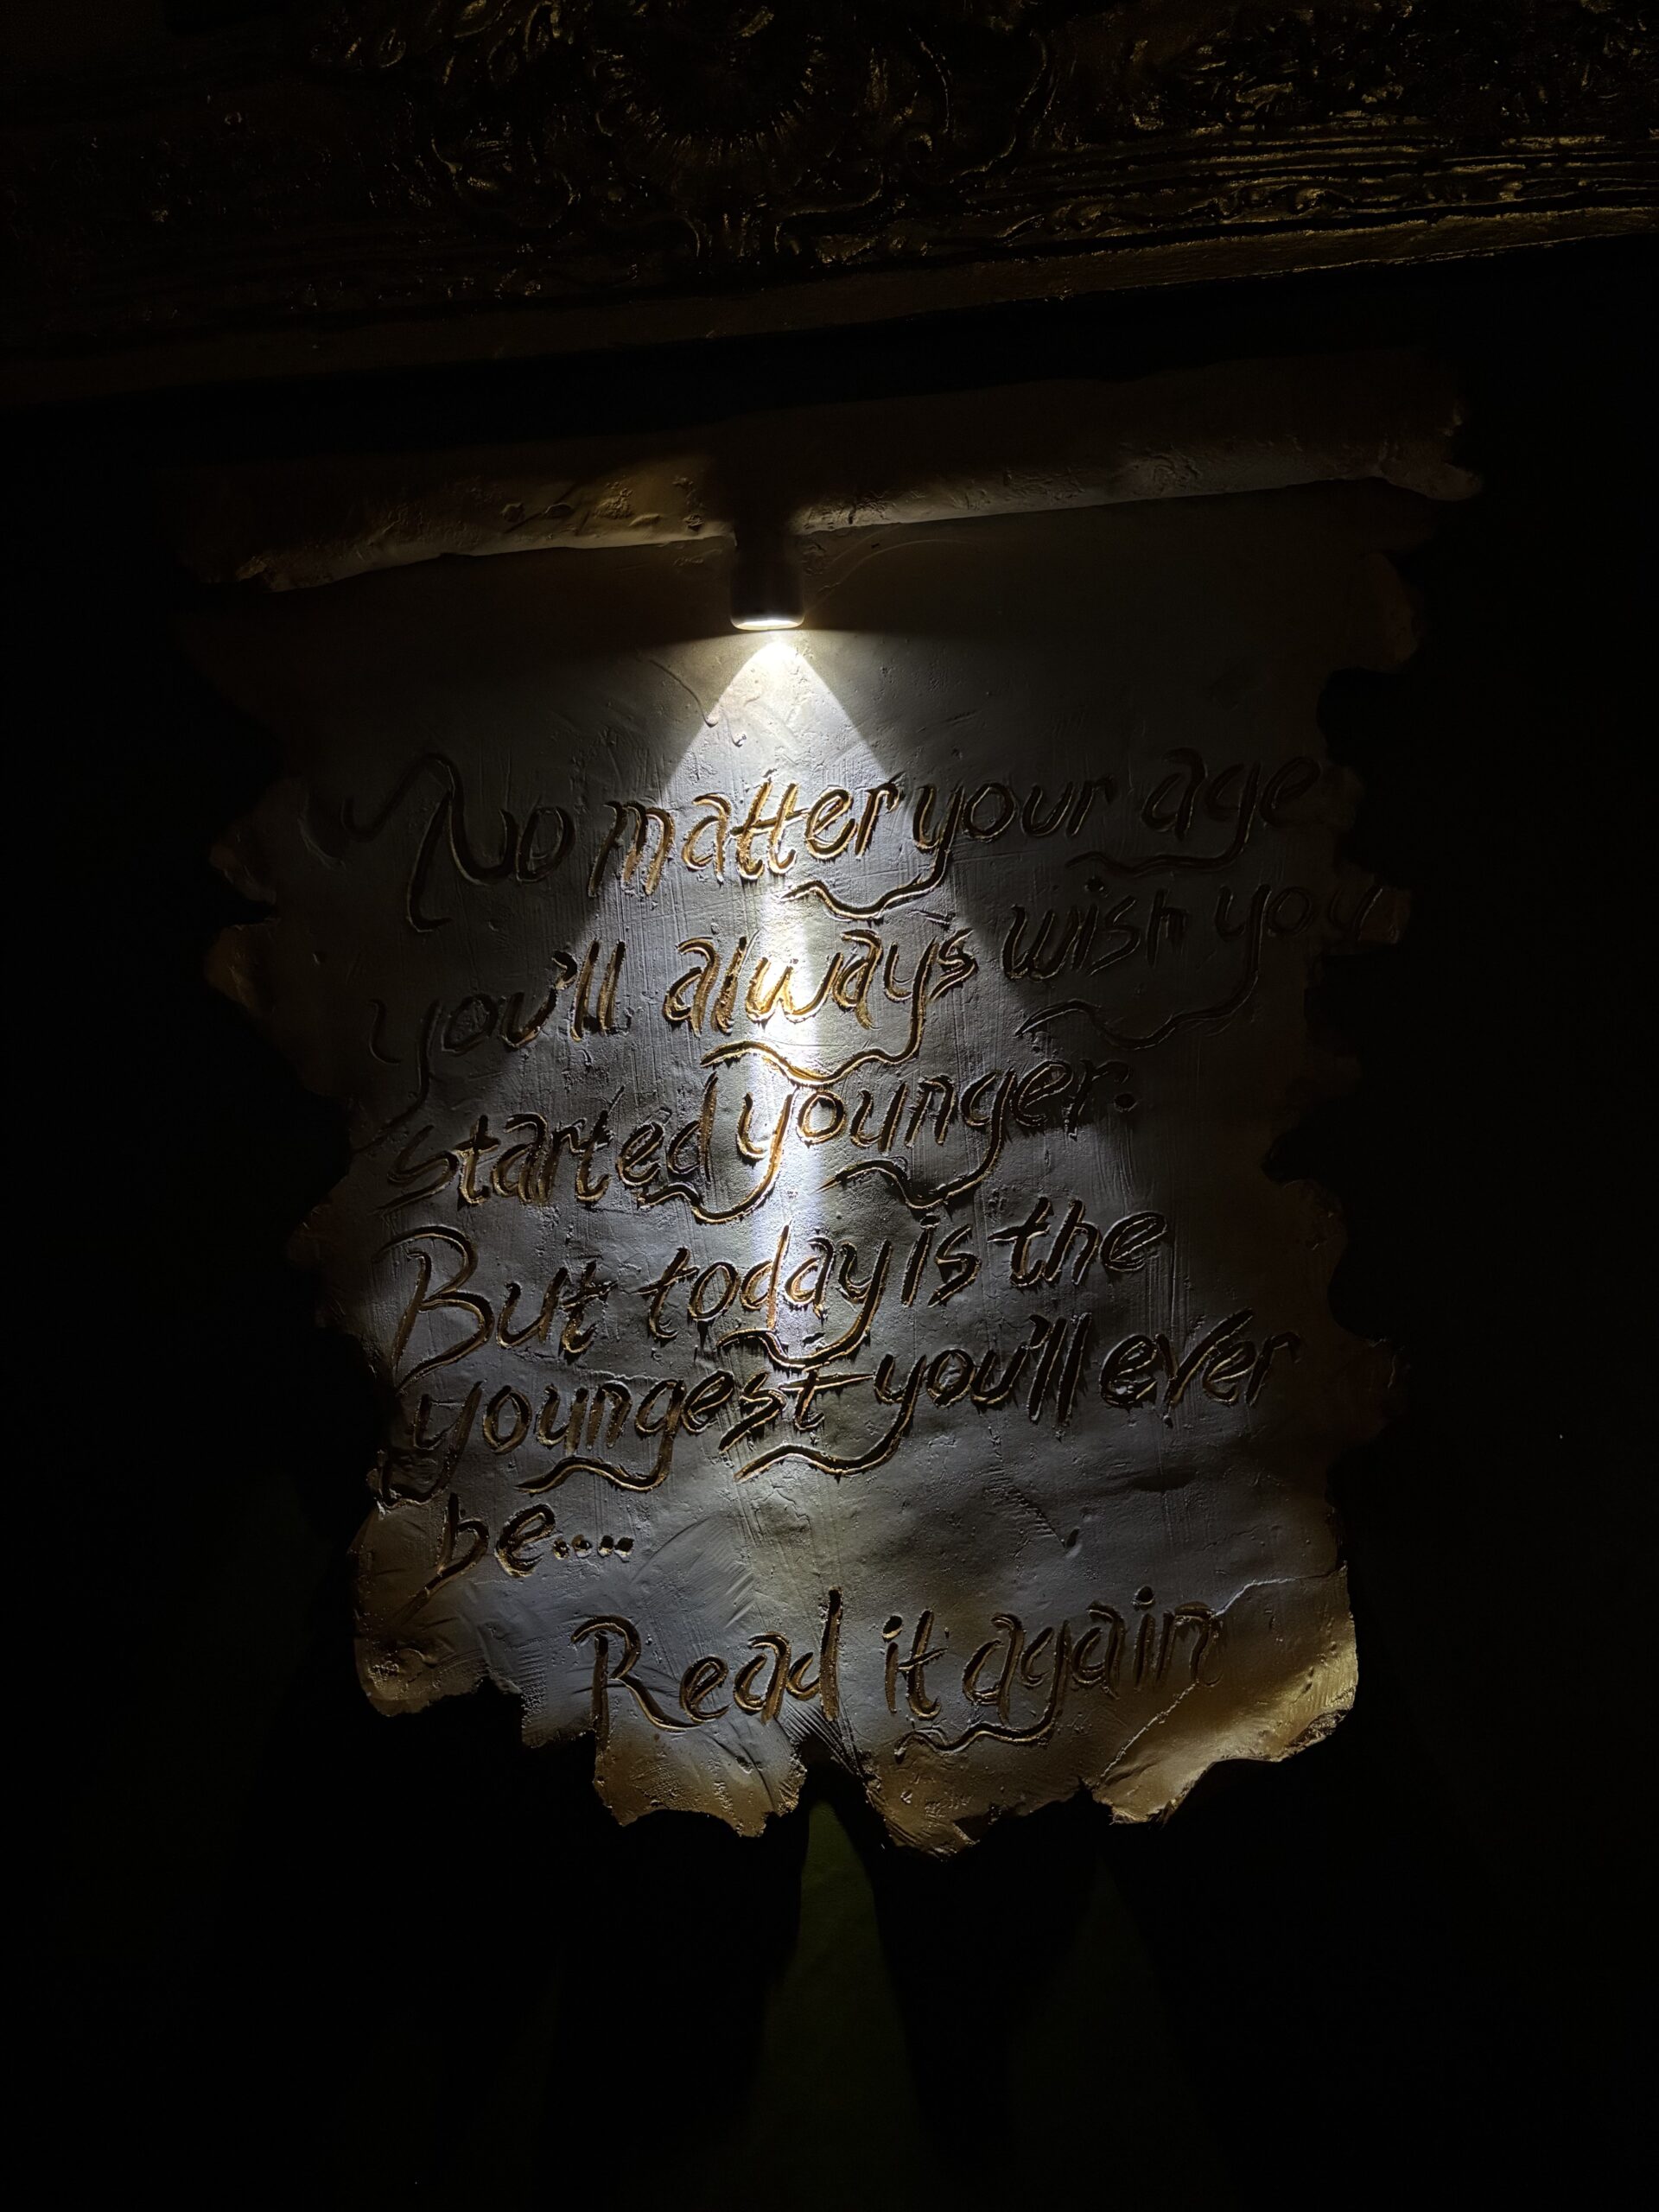 No matter your age
you'll always wish you
started younger.
But today is the
youngest you'll ever
be....
Read it again